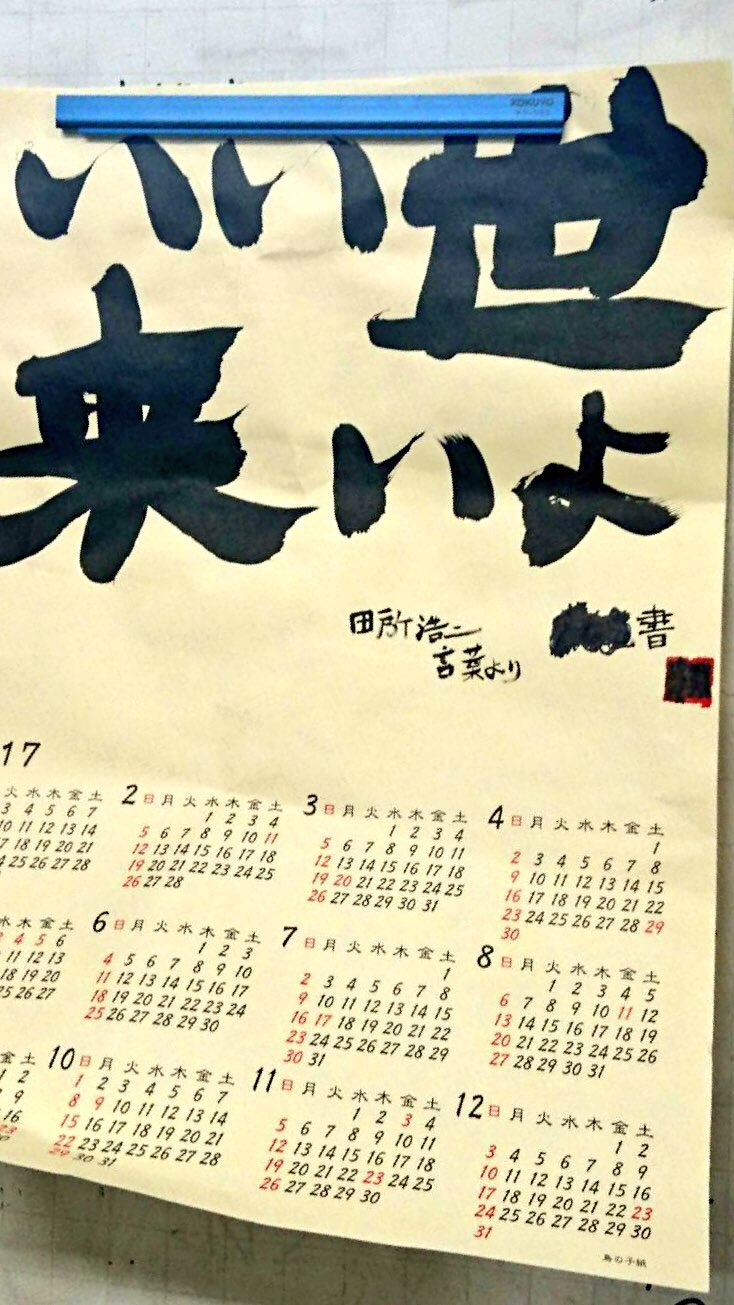 KOKUYO
いい世
来いよ
田所浩二
言葉より
書
17
火 水 木 金 土
3 4 5 6 7
10 11 12 13 14
17 18 19 20 21
25 26 27 28
2 日 月 火 水 木 金 土
1 2 3 4
5 6 7 8 9 10 11
12 13 14 15 16 17 18
19 20 21 22 23 24 25
26 27 28
3 日 月 火 水 木 金 土
1 2 3 4
5 6 7 8 9 10 11
12 13 14 15 16 17 18
19 20 21 22 23 24 25
26 27 28 29 30 31
4 日 月 火 水 木 金 土
1
2 3 4 5 6 7 8
9 10 11 12 13 14 15
16 17 18 19 20 21 22
23 24 25 26 27 28 29
30
水 木 金 土
3 4 5 6
11 12 13
18 19 20
25 26 27
6 日 月 火 水 木 金 土
1 2 3
4 5 6 7 8 9 10
11 12 13 14 15 16 17
18 19 20 21 22 23 24
25 26 27 28 29 30
7 日 月 火 水 木 金 土
1
2 3 4 5 6 7 8
9 10 11 12 13 14 15
16 17 18 19 20 21 22
23 24 25 26 27 28 29
30 31
8 日 月 火 水 木 金 土
1 2 3 4 5
6 7 8 9 10 11 12
13 14 15 16 17 18 19
20 21 22 23 24 25 26
27 28 29 30 31
金 土
1 2
9
16
23
30
10 日 月 火 水 木 金 土
1 2 3 4 5 6 7
8 9 10 11 12 13 14
15 16 17 18 19 20 21
22 23 24 25 26 27 28
29 30 31
11 日 月 火 水 木 金 土
1 2 3 4
5 6 7 8 9 10 11
12 13 14 15 16 17 18
19 20 21 22 23 24 25
26 27 28 29 30
12 日 月 火 水 木 金 土
1 2
3 4 5 6 7 8 9
10 11 12 13 14 15 16
17 18 19 20 21 22 23
24 25 26 27 28 29 30
31
鳥の子紙